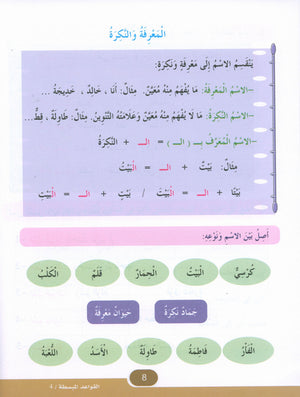 الْمَعْرِفَةُ وَالنَّكِرَةُ
يَنْقَسِمُ الاسْمُ إِلَى مَعْرِفَةٍ وَنَكِرَةٍ:
–الاسْمُ الْمَعْرِفَةُ: مَا يُفْهَمُ مِنْهُ مُعَيَّنٌ. مِثَالٌ: أَنَا ، خَالِدٌ ، خَدِيجَةُ ...
–الاسْمُ النَّكِرَةُ: مَا لَا يُفْهَمُ مِنْهُ مُعَيَّنٌ وَعَلَامَتُهُ التَّنْوِينُ. مِثَالٌ: طَاوِلَةٌ ، قِطٌّ...
–الاسْمُ الْمُعَرَّفُ بِـ ( الـ ) = الـ + النَّكِرَةُ
مِثَالٌ: بَيْتٌ + الـ = الْبَيْتُ
بَيْتًا + الـ = الْبَيْتَ / بَيْتٍ + الـ = الْبَيْتِ
أَصِلُ بَيْنَ الاسْمِ وَنَوْعِهِ:
كُرْسِيٌّ الْبَيْتُ الْحِمَارُ قَلَمٌ الْكَلْبُ
جَمَادٌ نَكِرَةٌ حَيَوَانٌ مَعْرِفَةٌ
الْفَأْرُ فَاطِمَةُ طَاوِلَةٌ الْأَسَدُ اللُّعْبَةُ
8
القواعد المبسطة / 4